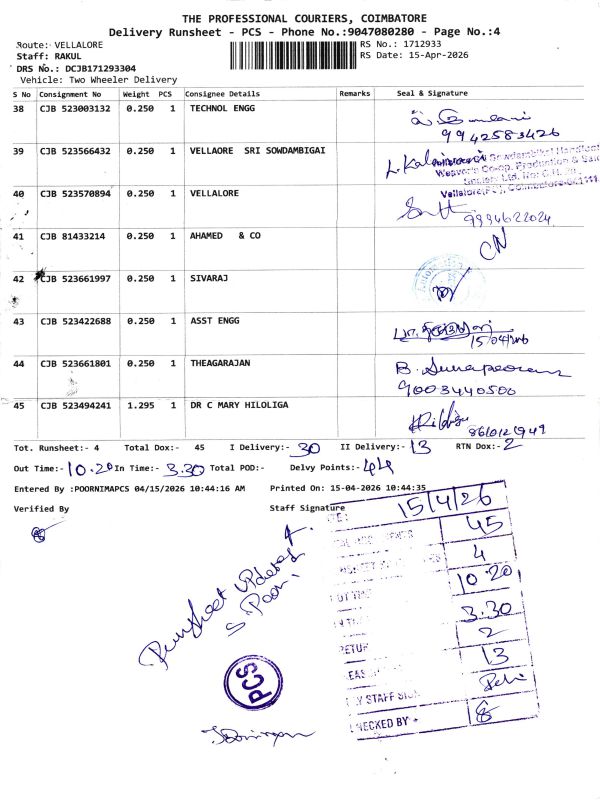 THE PROFESSIONAL COURIERS, COIMBATORE
Delivery Runsheet - PCS - Phone No.:9047080280 - Page No.:4
Route: VELLALORE
RS No.: 1712933
Staff: RAKUL
RS Date: 15-Apr-2026
DRS No.: DCJB171293304
Vehicle: Two Wheeler Delivery
S No Consignment No Weight PCS Consignee Details Remarks Seal & Signature
38 CJB 523003132 0.250 1 TECHNOL ENGG
9942583426
39 CJB 523566432 0.250 1 VELLAORE SRI SOWDAMBIGAI
Weaver's Co-op. Production & Sale
40 CJB 523570894 0.250 1 VELLALORE
9994622024
41 CJB 81433214 0.250 1 AHAMED & CO
42 CJB 523661997 0.250 1 SIVARAJ
43 CJB 523422688 0.250 1 ASST ENGG
15/04/
44 CJB 523661801 0.250 1 THEAGARAJAN
9003440500
45 CJB 523494241 1.295 1 DR C MARY HILOLIGA
Tot. Runsheet:- 4 Total Dox:- 45 I Delivery:- 30 II Delivery:- 13 RTN Dox:- 2
Out Time:- 10.20 In Time:- 3.30 Total POD:- Delvy Points:- 44
Entered By :POORNIMAPCS 04/15/2026 10:44:16 AM Printed On: 15-04-2026 10:44:35
Verified By Staff Signature
15/4/26
45
4
10.20
3.30
2
13
STAFF SIGN
CHECKED BY
Runsheet
PCS